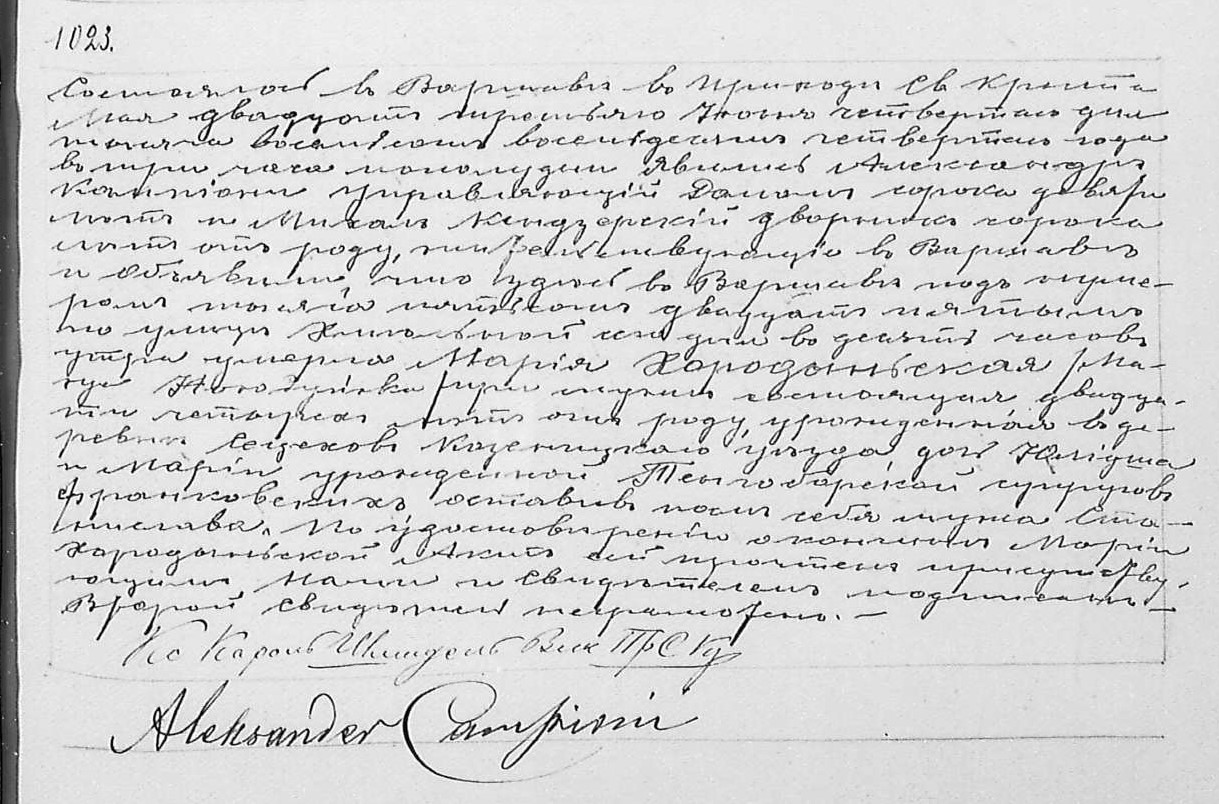 1023.
Состоялось въ Варшавѣ въ приходѣ Св Креста
Мая двадцать третьяго Іюня четвертаго дня
тысяча восемьсотъ восемьдесятъ четвертаго года
въ три часа пополудни явились Александръ
Кампіони управляющій домомъ сорока девяти
лѣтъ и Михаль Кендзерскій дворникъ сорока
лѣтъ отъ роду, жительствующіе въ Варшавѣ
и объявили, что здѣсь въ Варшавѣ подъ нуме-
ромъ тысяча пятьсотъ двадцать пятымъ
по улицѣ Хмѣльной сего дня въ десять часовъ
утра умерла Марія Хородыньская
при мужѣ состоящая двадца-
ти четырехъ лѣтъ отъ роду, урожденная въ де-
ревнѣ Сецеховъ Козеницкаго уѣзда, дочь Юліуша
и Маріи урожденной супруговъ
Франковскихъ оставивъ послѣ себя мужа Ста-
нислава. По удостовѣреніи о кончинѣ Маріи
Хородыньской Актъ сей прочтенъ присутству-
ющимъ Нами и свидѣтелемъ подписанъ
Второй свидѣтель неграмотенъ. —
Кс Кароль Шмидель Вик ПРСКр
Aleksander Campioni